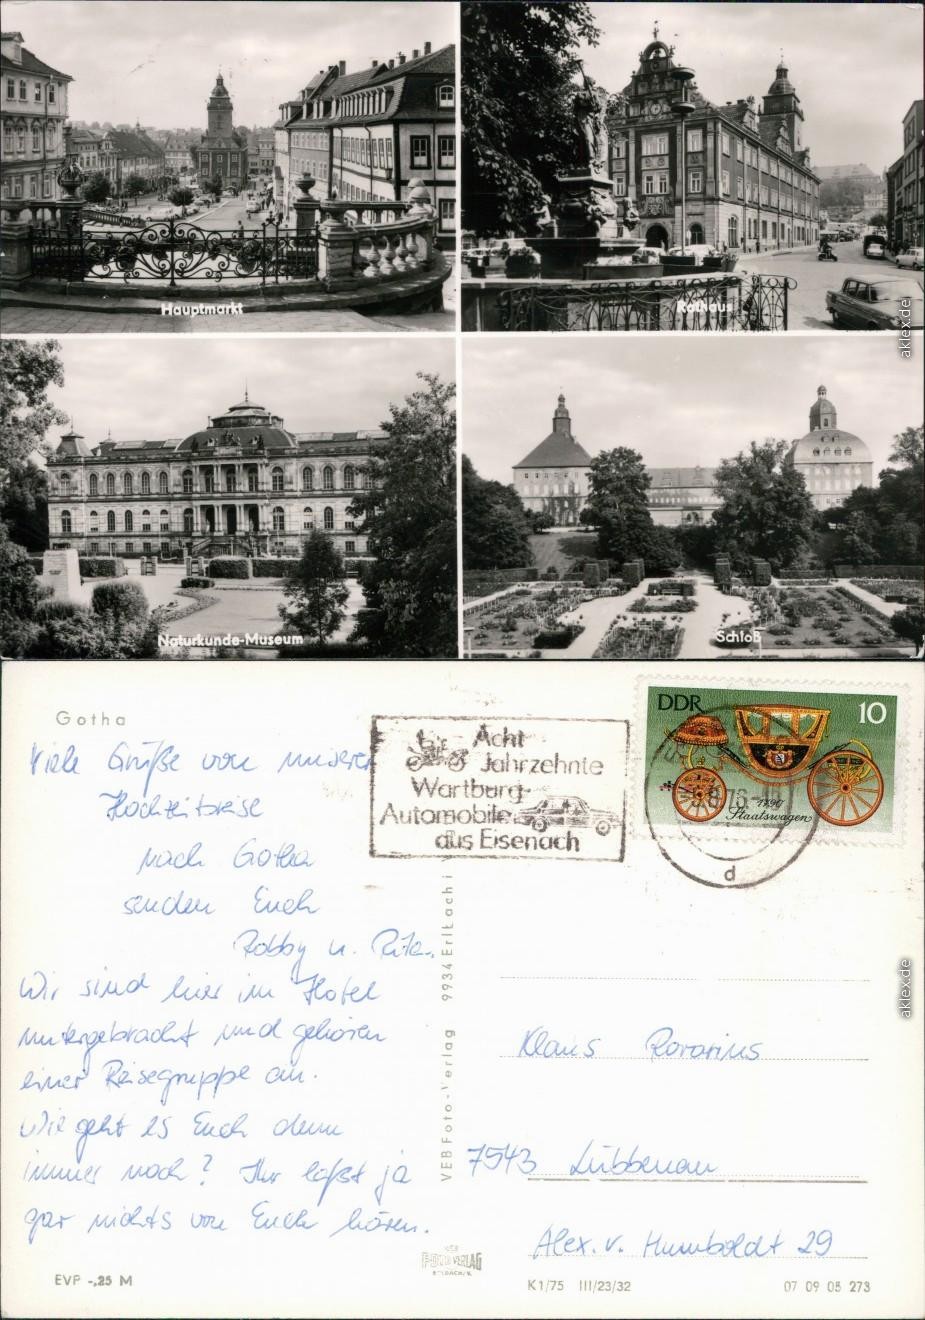 Hauptmarkt
Rathaus
aklex.de
Naturkunde-Museum
Schloß
Gotha
Viele Grüße von unserer
Hochzeitsreise
nach Gotha
senden Euch
Robby u. Rita.
Wir sind hier im Hotel
untergebracht und gehören
einer Reisegruppe an.
Wie geht es Euch denn
immer noch? Ihr laßt ja
gar nichts von Euch hören.
EVP -,25 M
Acht
Jahrzehnte
Wartburg-
Automobile
aus Eisenach
DDR 10
1790
Staatswagen
d
VEB Foto-Verlag 9934 Erlbach i
aklex.de
Klaus
7543 Lübbenau
Alex. v. Humboldt 29
FOTO VERLAG
K 1/75 III/23/32
07 09 05 273